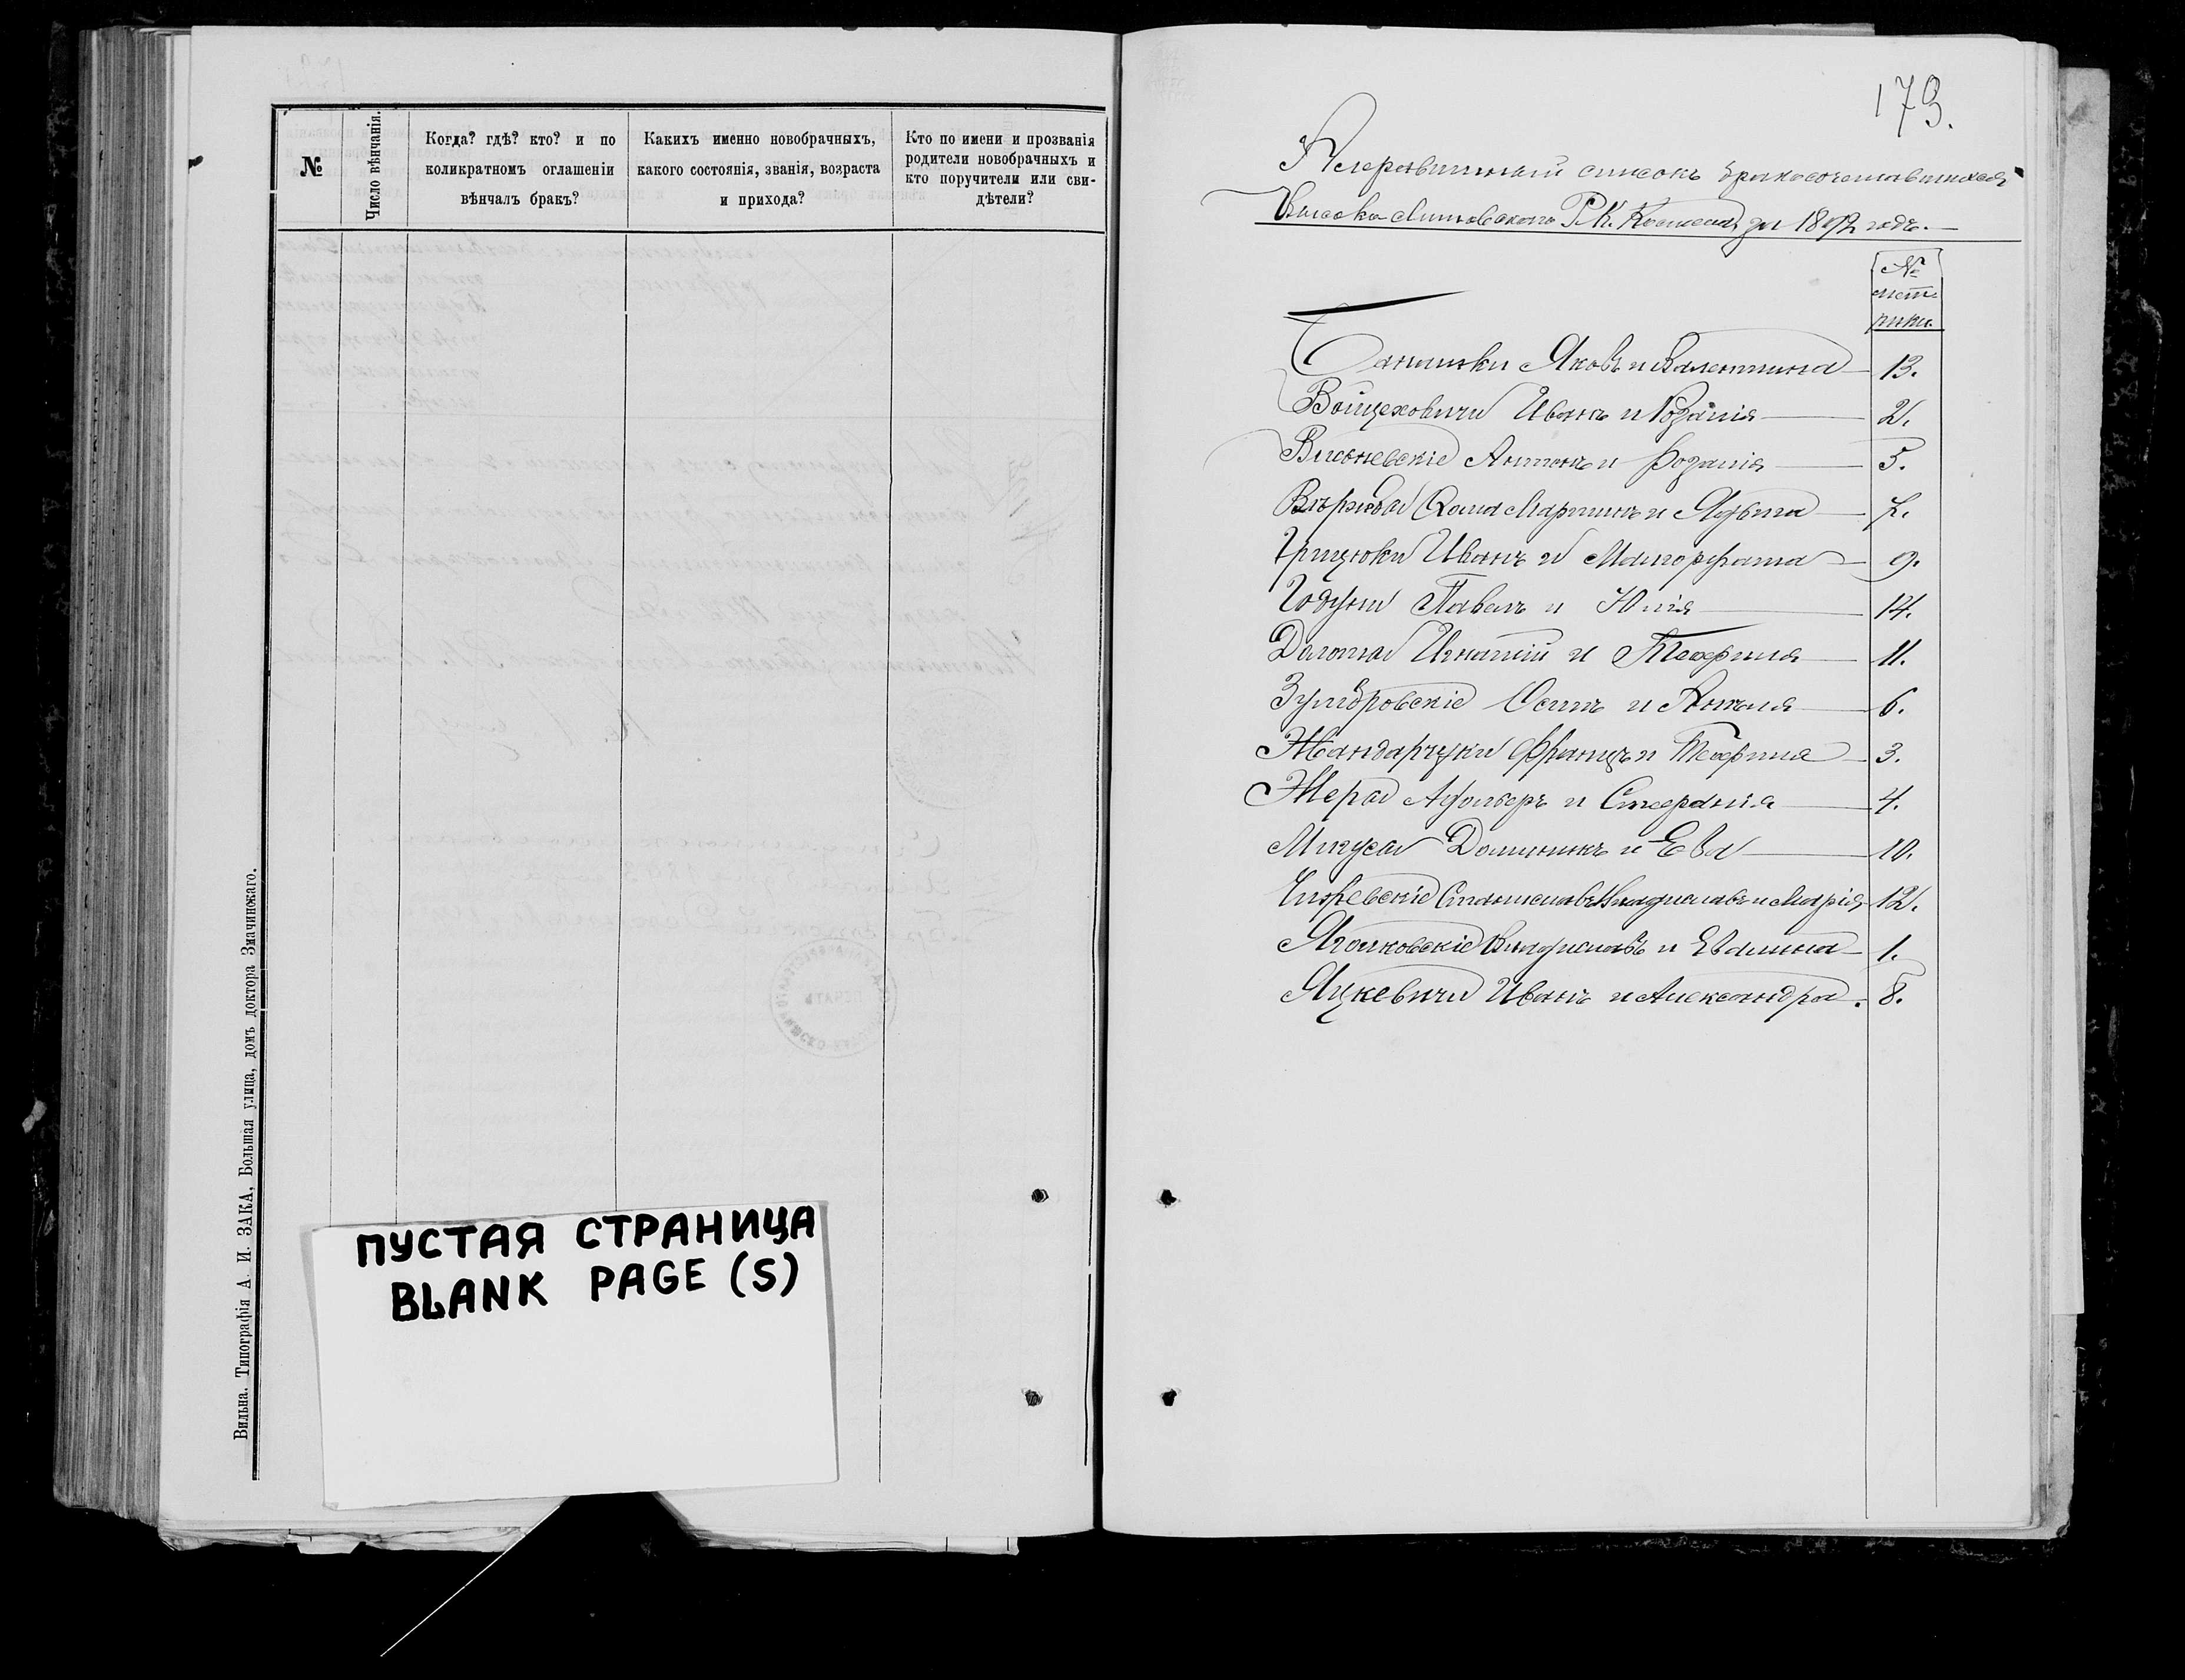 №
Число вѣнчанія.
Когда? гдѣ? кто? и по
коликратномъ оглашеніи
вѣнчалъ бракъ?
Какихъ именно новобрачныхъ,
какого состоянія, званія, возраста
и прихода?
Кто по имени и прозванія
родители новобрачныхъ и
кто поручители или сви-
дѣтели?
Вильна. Типографія А. И. ЗАКА, Большая улица, домъ доктора Змачинскаго.
ПУСТАЯ СТРАНИЦА
BLANK PAGE (S)
173.
списокъ бракосочетавшихся
Высоко-Литовскаго Р. К. Костела за 1892 годъ.
№
мет-
рики.
Яковъ и Валентина 13.
Войцеховичи Иванъ и Розалія 2.
Висьневскіе Антонъ и Розалія 5.
Мартинъ и Ядвига 7.
Грицюки Иванъ и Малгоржата 9.
Годуны Павелъ и Юлія 14.
Игнатій и Теофиля 11.
Осипъ и Анеля 6.
Жандарчуки Францъ и Теофиля 3.
Жера и Стефанія 4.
Доминикъ и Ева 10.
Чижевскіе Станиславъ Владиславъ и Марія 12.
Владиславъ и Эвелина 1.
Яцкевичи Иванъ и Александра. 8.